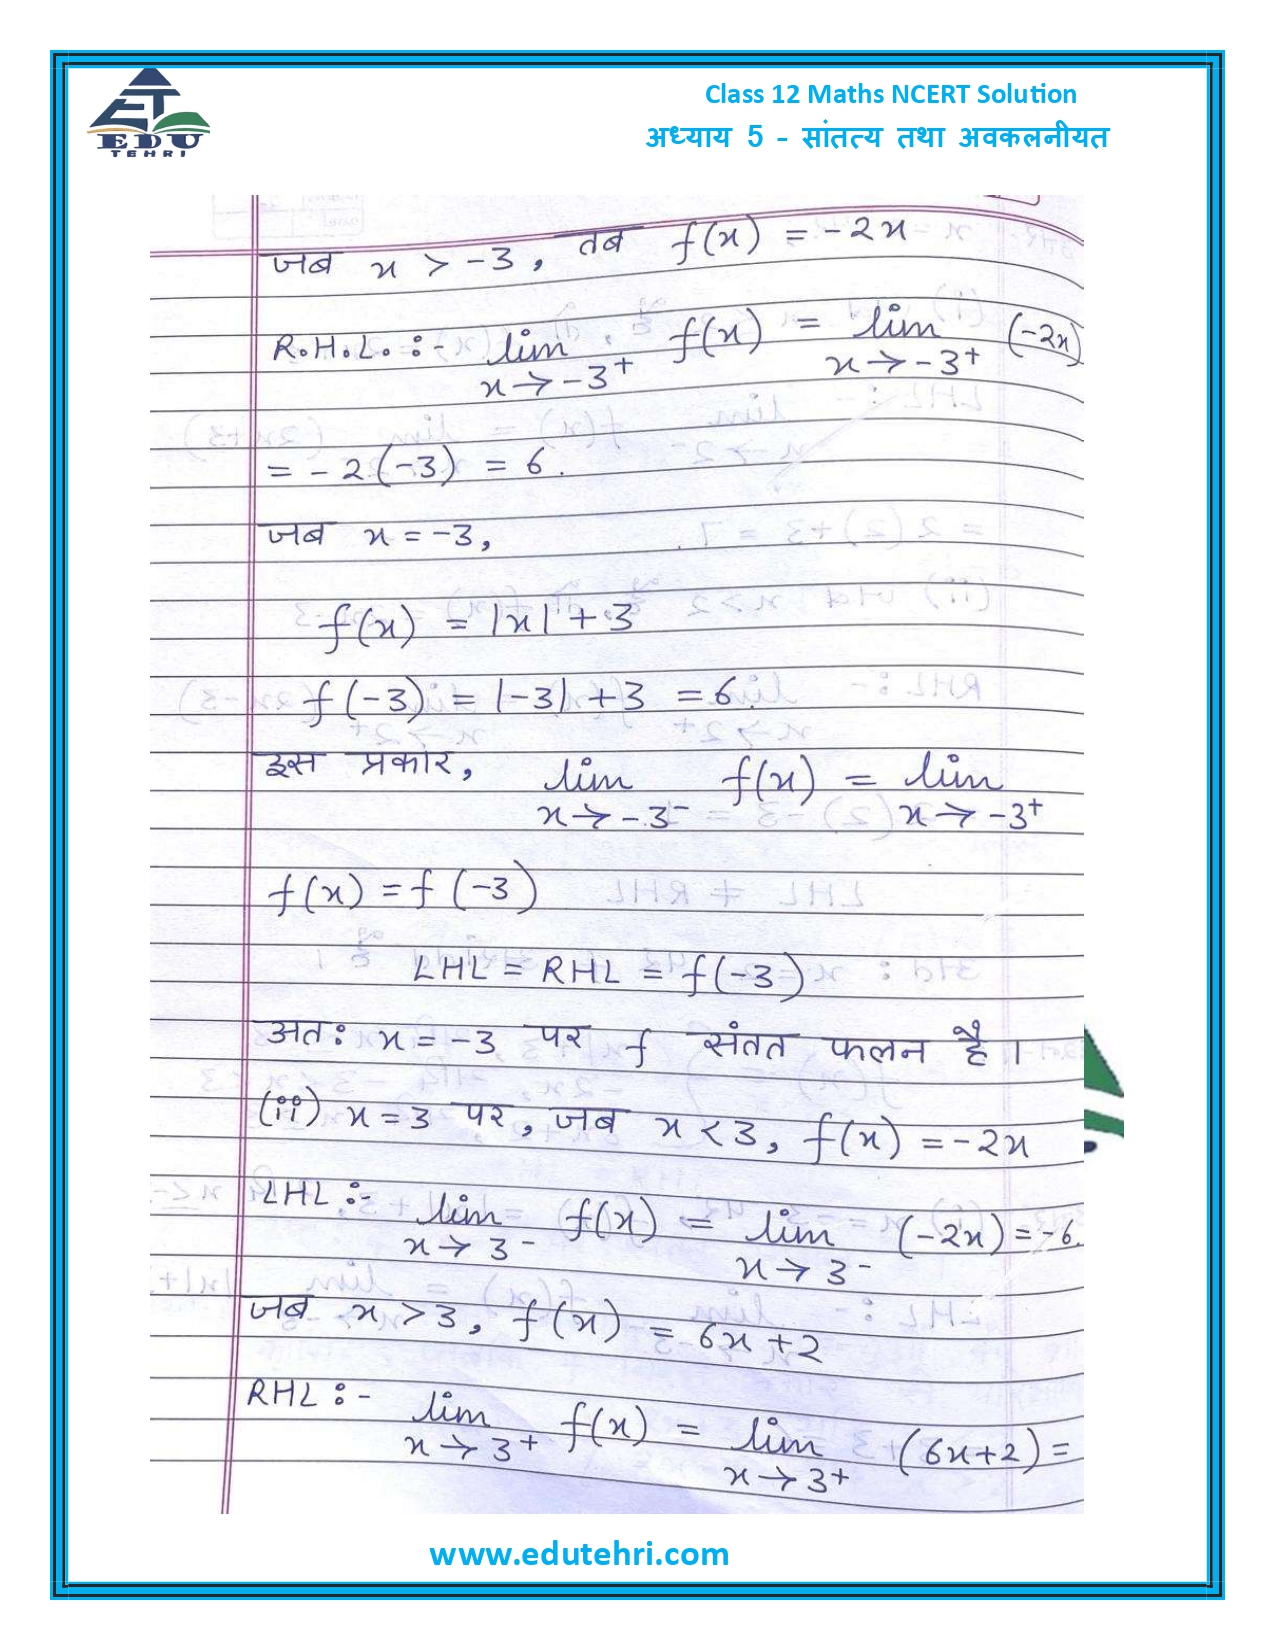 EDU
TEHRI
Class 12 Maths NCERT Solution
अध्याय 5 - सांतत्य तथा अवकलनीयत
जब x > -3, तब f(x) = -2x
R.H.L. :- lim f(x) = lim (-2x)
x→-3⁺ x→-3⁺
= -2(-3) = 6.
जब x = -3,
f(x) = |x| + 3
f(-3) = |-3| + 3 = 6.
इस प्रकार, lim f(x) = lim
x→-3⁻ x→-3⁺
f(x) = f(-3)
LHL = RHL = f(-3)
अतः x = -3 पर f संतत फलन है।
(ii) x = 3 पर, जब x < 3, f(x) = -2x
LHL :- lim f(x) = lim (-2x) = -6.
x→3⁻ x→3⁻
जब x > 3, f(x) = 6x + 2
RHL :- lim f(x) = lim (6x+2) =
x→3⁺ x→3⁺
www.edutehri.com